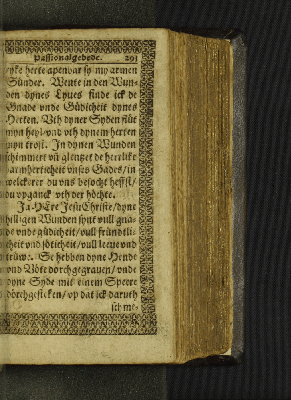 Passionalgebede. 293
ryke herte apenbar sy my armen
Sünder. Wente in den Wun-
den dynes Lyues finde ick de
Gnade vnde Güdicheit dynes
Herten. Vth dyner Syden flüt
myn heyl vnd vth dynem herten
myn trost. In dynen Wunden
schimmert vñ glentzet de heerlike
barmherticheit vnses Gades/in
welckerer du vns besocht heffst/
du vpganck vth der höchte.
Ja HErr Jesu Christe/dyne
hilligen Wunden synt vull gna-
de vnde güdicheit/vull fründtli-
cheit vnd söticheit/vull leeue vnd
trüwe. Se hebben dyne Hende
vnd Vöte dorchgegrauen/vnde
dyne Syde mit einem Speere
dörchgesteken/vp dat ick daruth
ich mö-